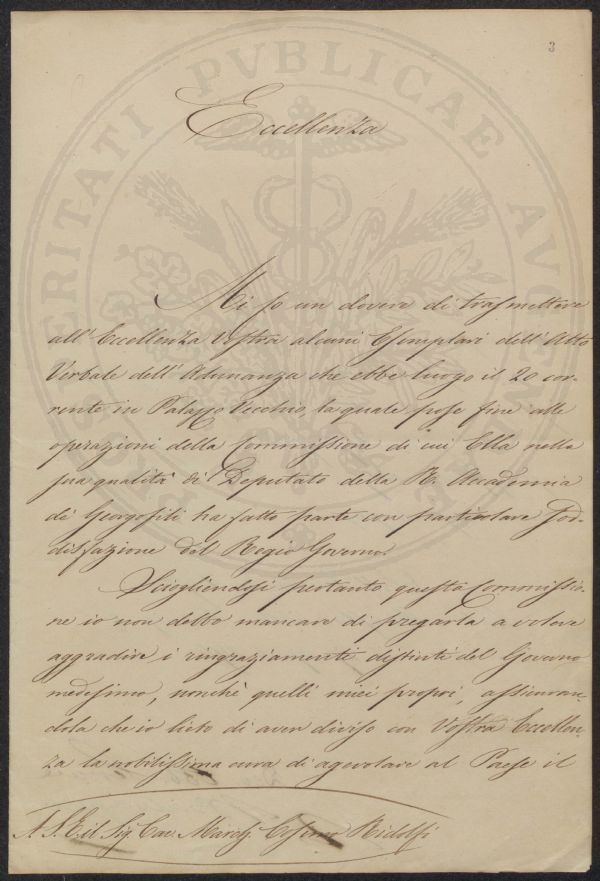 3
PROSPERITATI PVBLICAE AVGENDAE
Eccellenza
Mi fo un dovere di trasmettere
all'Eccellenza Vostra alcuni Esemplari dell'Atto
Verbale dell'Adunanza che ebbe luogo il 20 cor-
rente in Palazzo Vecchio, la quale pose fine alle
operazioni della Commissione di cui Ella nella
sua qualità di Deputato della R. Accademia
dei Georgofili ha fatto parte con particolare Sod-
disfazione del Regio Governo.
Sciogliendosi pertanto questa Commissio-
ne io non debbo mancare di pregarla a volere
aggradire i ringraziamenti distinti del Governo
medesimo, nonchè quelli miei propri, assicuran-
dola che io lieto di aver diviso con Vostra Eccellen-
za la nobilissima cura di agevolare al Paese il
A S. E. il Sig. Cav. March. Cosimo Ridolfi